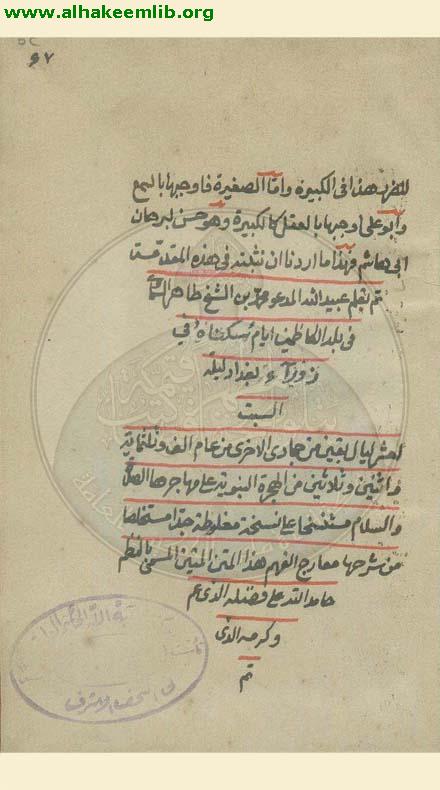 www.alhakeemlib.org
٩٧
هذا في الكبيرة وأما الصغيرة فاوجبها بالسمع
وأبو علي اوجبها بالعقل كالكبيرة وهو حسن لبرهان
ابي هاشم فهذا ما اردنا ان نثبته في هذه المقدمة
تم بقلم عبيد الله المدعو محمد بن الشيخ طاهر السماوي
في بلد الكاظمين ايام سكناه في
زوراء بغداد ليلة
السبت
لعشر ليال بقين من جمادى الاخرى من عام الف وثلثمائة
واثنين وثلاثين من الهجرة النبوية على مهاجرها الصلاة
والسلام مستنسخا على نسخة مغلوطة جدا مستخلصا
من شرحها معارج الفهم هذا المتن المتين المسمى بالنظم
حامدا لله على فضله الذي عم
وكرمه الذي
تم